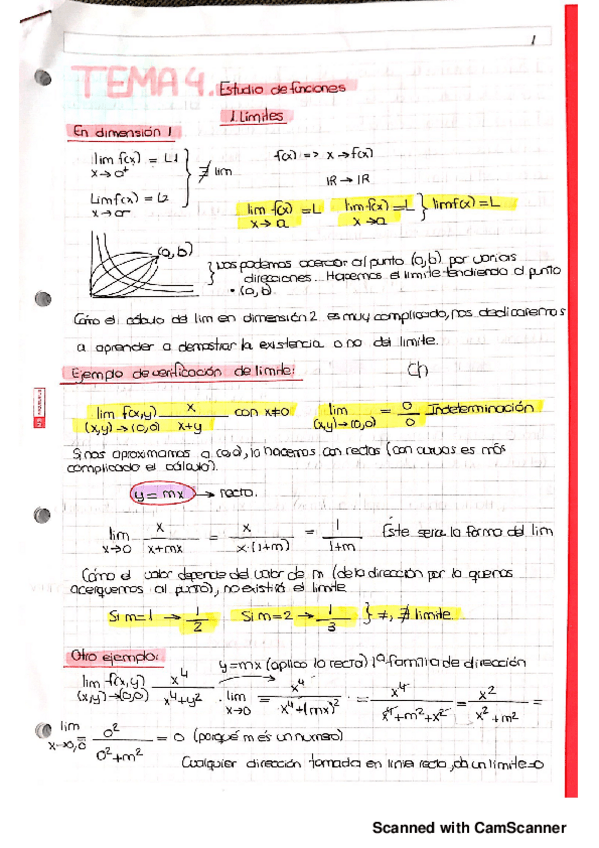 1
TEMA 4. Estudio de funciones
1 Límites
En dimensión 1
lim f(x) = L1
x→0⁺
} ∄ lim
Lim f(x) = L2
x→0⁻
f(x) => x → f(x)
IR → IR
lim f(x) = L
x→a
lim f(x) = L } lim f(x) = L
x→a
(a,b)
} Nos podemos acercar al punto (a,b) por varias
direcciones... Hacemos el límite tendiendo al punto
• (a,b)
Cómo el cálculo del lim en dimensión 2 es muy complicado, nos dedicaremos
a aprender a demostrar la existencia o no del límite.
Ejemplo de verificación de límite:
lim f(x,y) x/x+y con x≠0
(x,y)→(0,0)
lim = 0/0 Indeterminación
(x,y)→(0,0)
Si nos aproximamos a (0,0), lo hacemos con rectas (con curvas es más
complicado el cálculo).
y = mx → recta.
lim x/x+mx = x/x·(1+m) = 1/1+m Éste sera la forma del lim
x→0
Cómo el valor depende del valor de m (de la dirección por la que nos
acerquemos al punto), no existirá el límite
Si m=1 → 1/2 Si m=2 → 1/3 } ≠, ∄ límite.
Otro ejemplo:
y=mx (aplico la recta) 1ª familia de dirección
lim f(x,y) x⁴/x⁴+y² . lim = x⁴/x⁴+(mx)² = x⁴/x⁴+m²+x² = x²/x²+m² =
(x,y)→(0,0) x→0
lim = 0²/0²+m² = 0 (porqué m es un numero)
x→0,0
Cualquier dirección tomada en linea recta, da un límite=0
Scanned with CamScanner